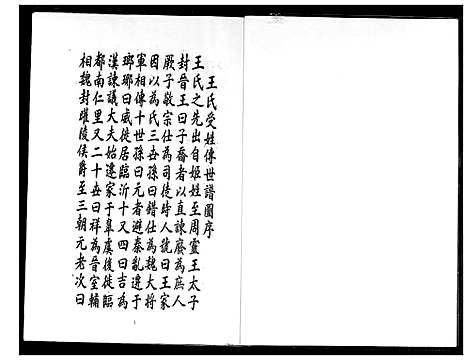 王氏受姓傳世譜圖序
王氏之先出自姬姓至周靈王太子
封晉王曰子喬者以直諫廢為庶人
厥子敬宗仕為司徒時人號曰王家
因以為氏三世孫曰錯仕為魏大將
軍相傳十世孫曰元者避秦亂遷于
瑯琊曰威徙居臨沂十又四曰吉為
漢諫議大夫始遷家于皐虞後徙臨
都南仁里又二十世曰祥為晉室輔
相魏封睢陵侯爵至三朝元老次曰
1